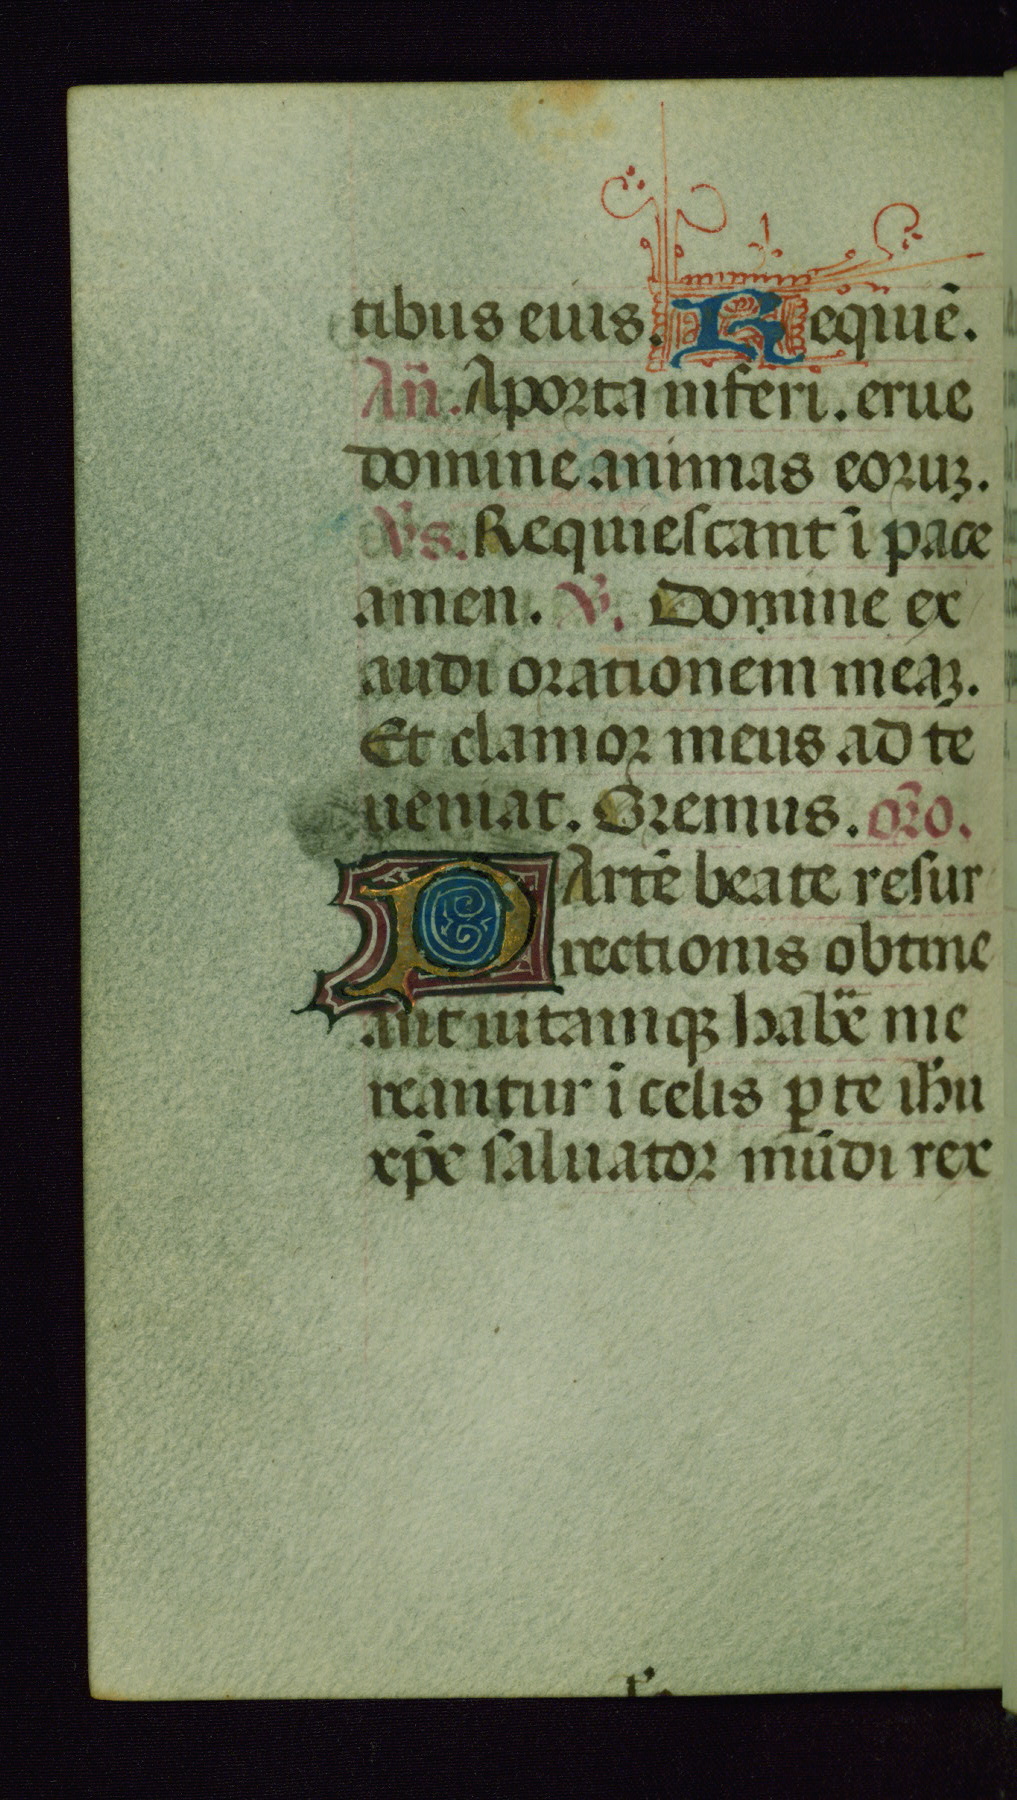 tibus eius. Requiē.
Añ. A porta inferi. erue
domine animas eoruꝫ.
V̄s. Requiescant ī pace
amen. V̄. Domine ex
audi orationem meaꝫ.
Et clamor meus ad te
ueniat. Oremus. or̄o.
PArtē beate resur
rectionis obtine
ant uitamqꝫ habē̄ me
reantur ī celis ꝑ te ih̄u
xp̄e saluator mūdi rex